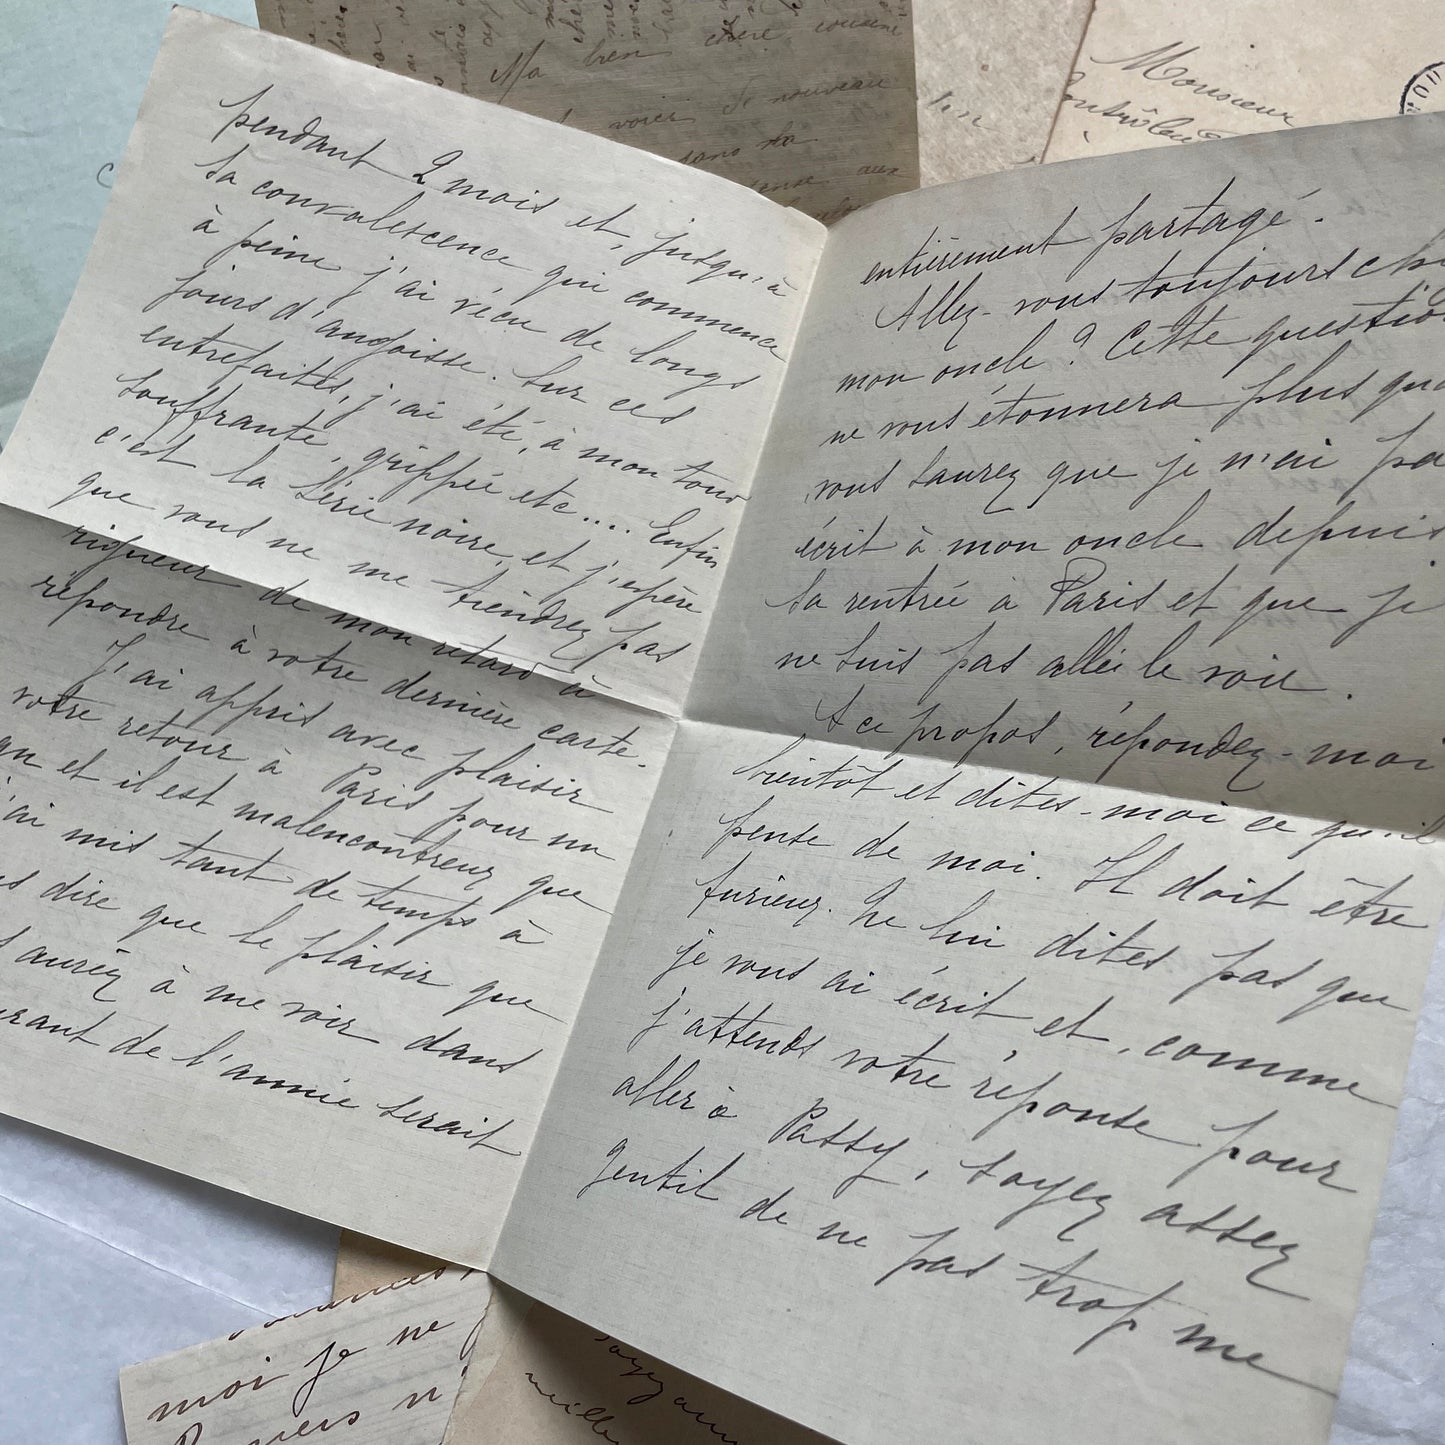 pendant 2 mois et, jusqu'à
sa convalescence qui commence
à peine j'ai vécu de longs
jours d'angoisse. Sur ces
entrefaites, j'ai été, à mon tour
souffrante, grippée etc.... Enfin
c'est la série noire, et j'espère
que vous ne me tiendrez pas
rigueur de mon retard à
répondre à votre dernière carte.
J'ai appris avec plaisir
votre retour à Paris pour un
an et il est malencontreux que
j'ai mis tant de temps à
dire que le plaisir que
aurez à me voir dans
de l'année serait
entièrement partagé.
Allez-vous toujours
mon oncle ? Cette question
ne vous étonnera plus
vous saurez que je n'ai pa
écrit à mon oncle depuis
sa rentrée à Paris et que je
ne suis pas allée le voir.
A ce propos, répondez-moi
bientôt et dites-moi ce qu'il
pense de moi. Il doit être
furieux. Ne lui dites pas que
je vous ai écrit et, comme
j'attends votre réponse pour
aller à Passy, soyez assez
gentil de ne pas trop me
Ma bien chère cousine
voici de nouveau
dans la
aux
Monsieur
moi je ne